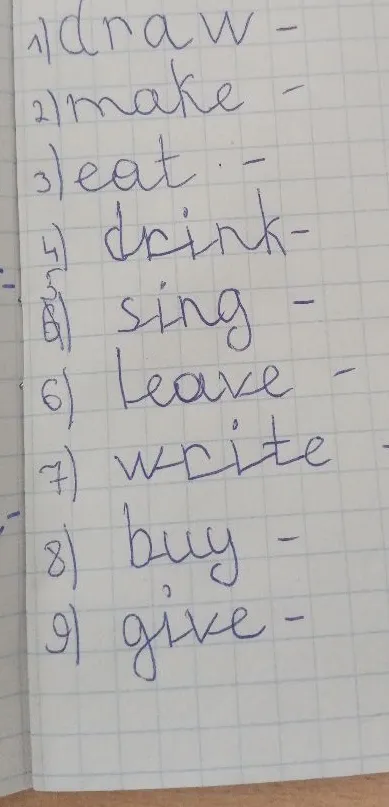 1) draw -
2) make -
3) eat -
4) drink-
5) sing -
6) leave -
7) write -
8) buy -
9) give -